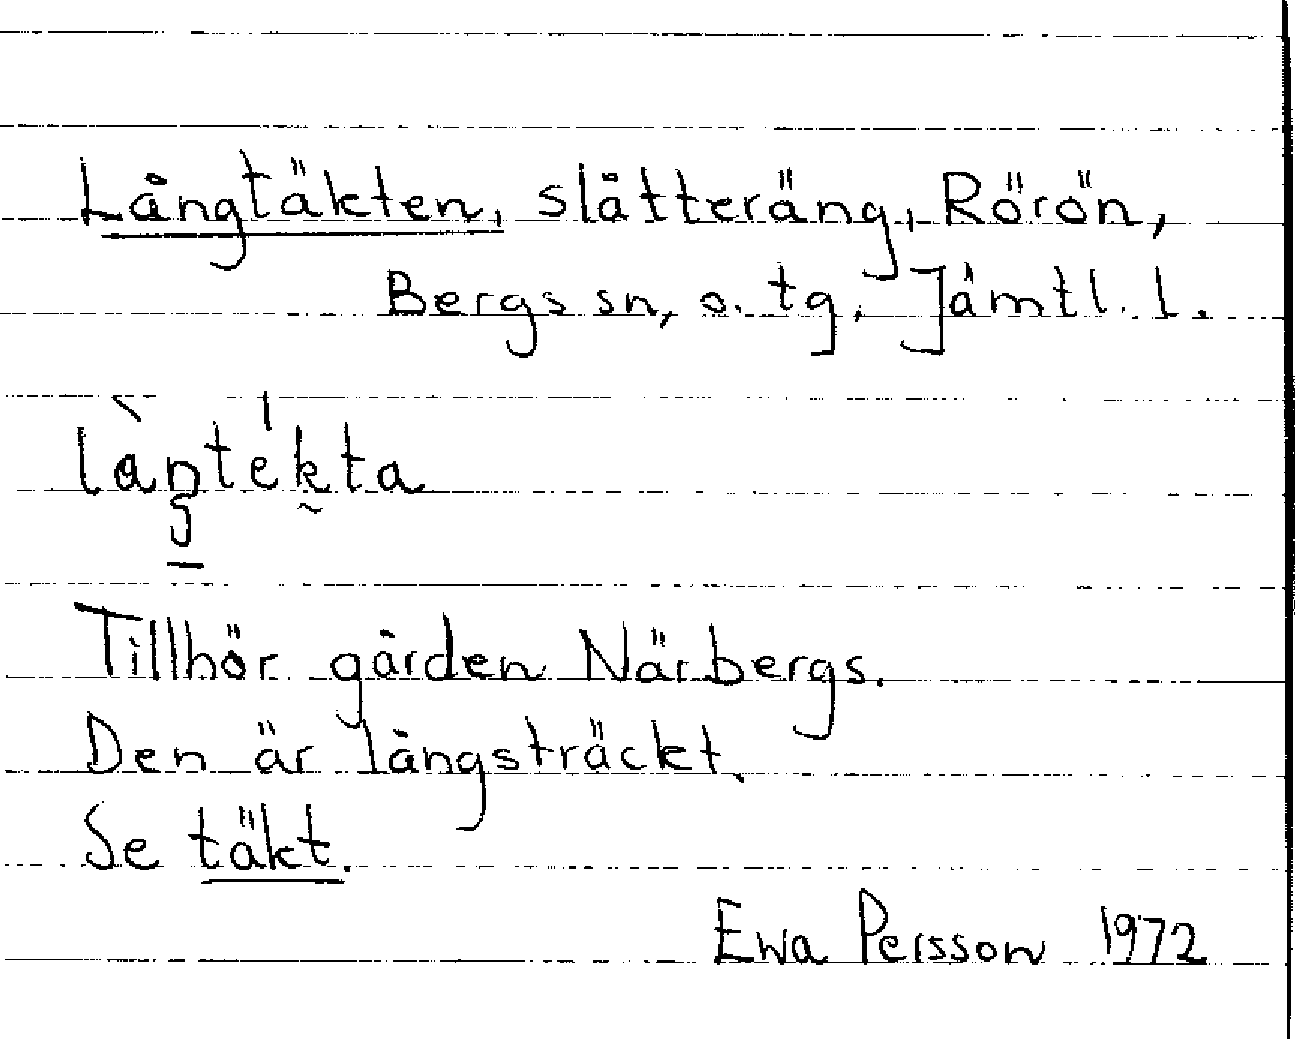 Långtäkten, slåtteräng, Rörön,
Bergs sn, o. tg, Jämtl. l.
Tillhör gården Närbergs.
Den är långsträckt.
Se täkt.
Ewa Persson 1972